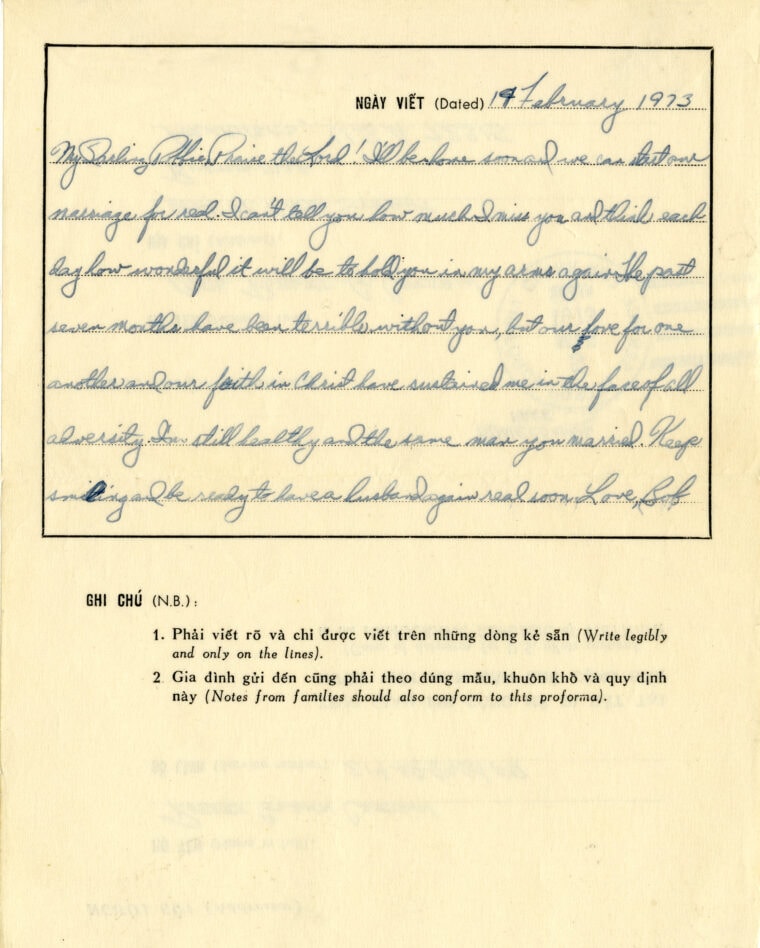 NGÀY VIẾT (Dated) 14 February 1973
My Darling Robbie, Praise the Lord! I'll be home soon and we can start our
marriage for real. I can't tell you how much I miss you and think each
day how wonderful it will be to hold you in my arms again. The past
seven months have been terrible without you, but our love for one
another and our faith in Christ have sustained me in the face of all
adversity. I'm still healthy and the same man you married. Keep
smiling and be ready to have a husband again real soon. Love, Bob
GHI CHÚ (N.B.):
1. Phải viết rõ và chỉ được viết trên những dòng kẻ sẵn (Write legibly
and only on the lines).
2. Gia đình gửi đến cũng phải theo đúng mẫu, khuôn khổ và quy định
này (Notes from families should also conform to this proforma).